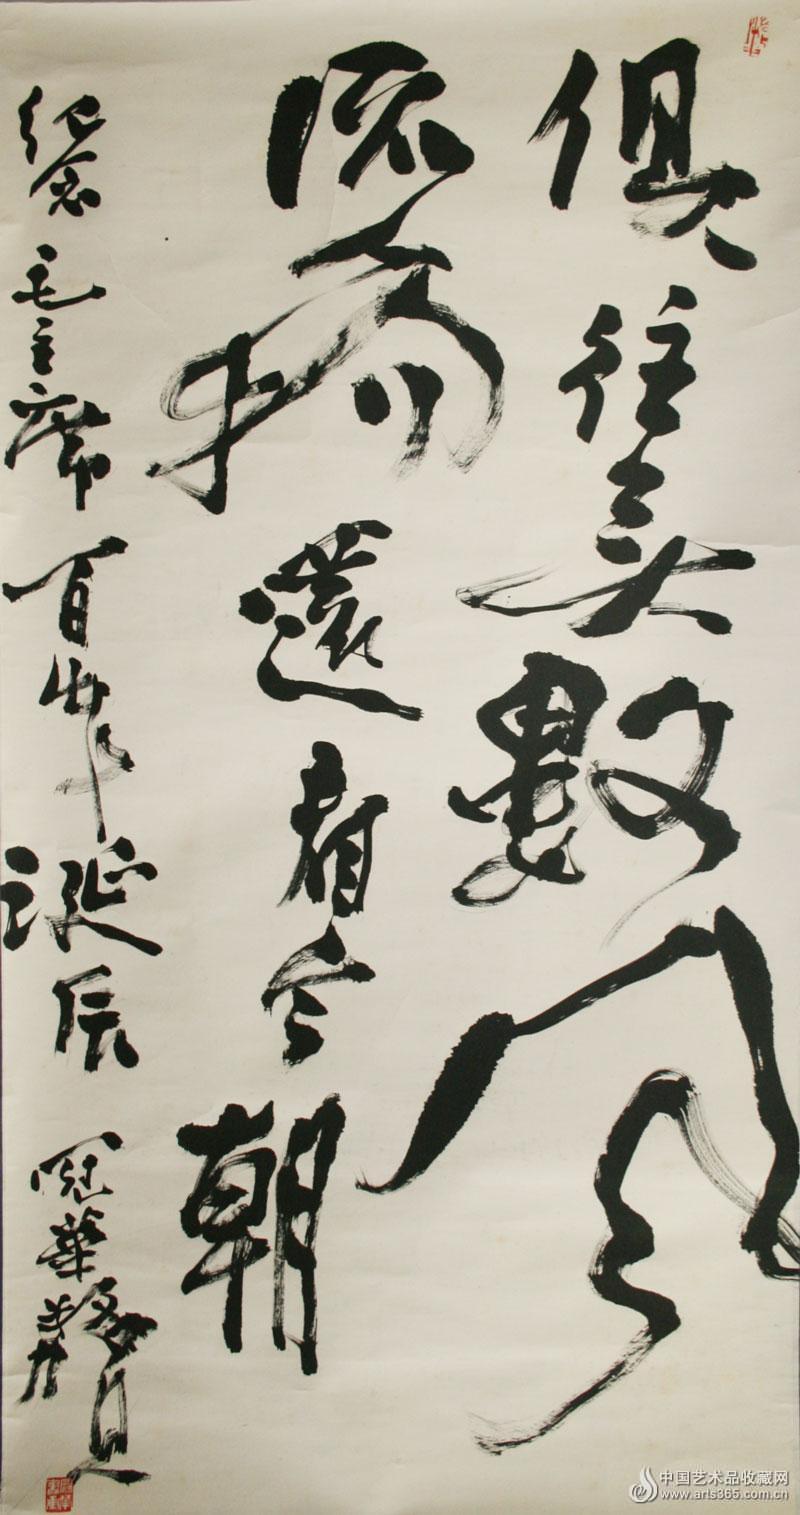 俱往矣數風
流人物還看今朝
紀念毛主席百年誕辰
中国艺术品收藏网
www.arts365.com.cn